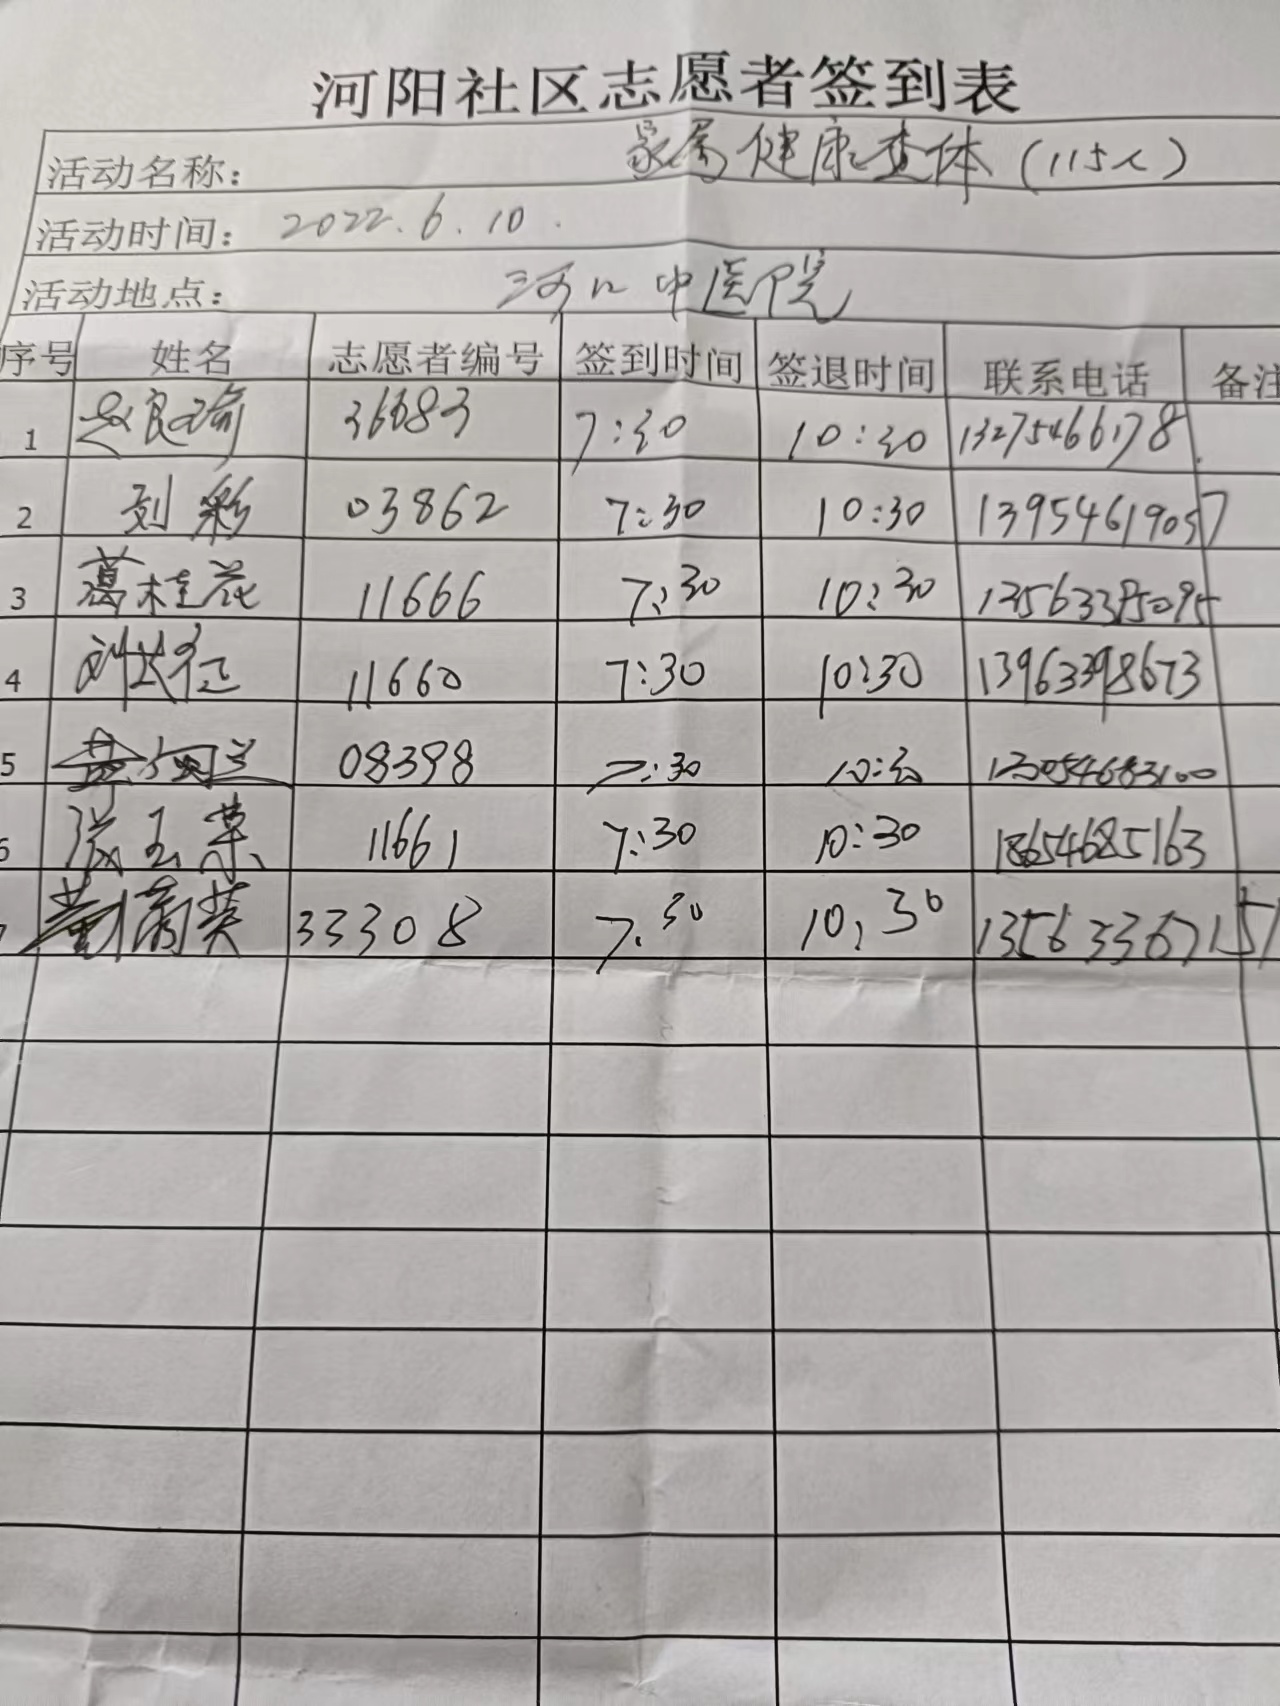 河阳社区志愿者签到表
活动名称: 家属健康查体(115人)
活动时间: 2022.6.10.
活动地点: 河口中医院
序号 姓名 志愿者编号 签到时间 签退时间 联系电话 备注
1 赵良瑜 36683 7:30 10:30 13275466178
2 刘彩 03862 7:30 10:30 13954619057
3 葛桂花 11666 7:30 10:30 13563395095
4 刘长征 11660 7:30 10:30 13963398673
5 08398 7:30 10:30 13054683100
6 张玉荣 11661 7:30 10:30 18654685163
33308 7:30 10:30 13563367151